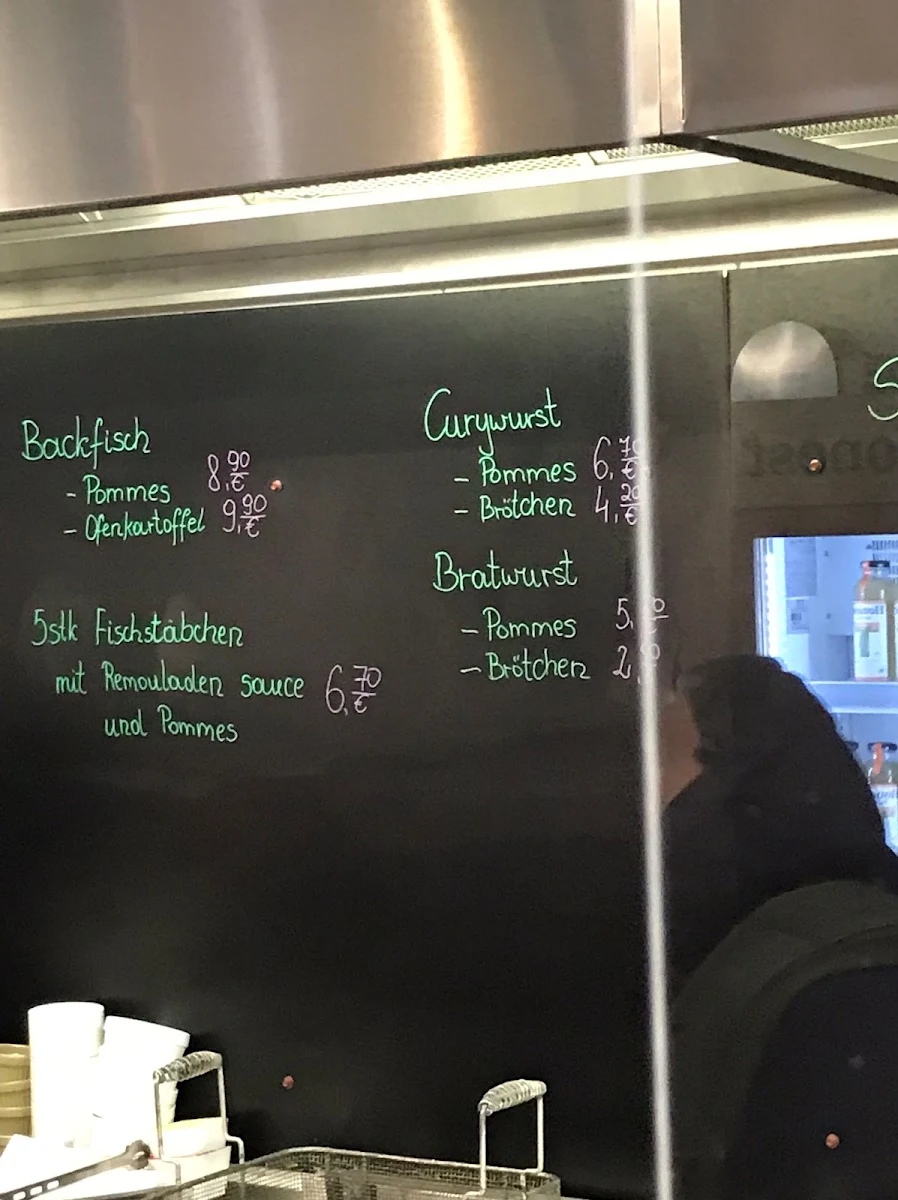 Backfisch
- Pommes 8,90 €
- Ofenkartoffel 9,90 €
5stk Fischstäbchen
mit Remouladen sauce 6,70 €
und Pommes
Curywurst
- Pommes 6,70 €
- Brötchen 4,20 €
Bratwurst
- Pommes
- Brötchen